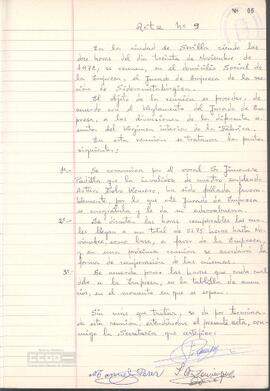 Nº 05
Acta Nº 9
En la ciudad de Sevilla siendo las
dos horas del día treinta de Noviembre de
1972, se reunen, en el domicilio Social de
la Empresa, el Jurado de Empresa de la sección
de Siderometalúrgica.
El objeto de la reunión es proceder, de
acuerdo con el Reglamento del Jurado de Empresa,
a las discusiones de los diferentes
asuntos del Régimen interior de la Fábrica.
En esta reunión se trataron los puntos
siguientes:
1º.- Se comunica por el vocal Sr. Jimenez
Padilla que la invalidez de nuestro empleado
Arturo Romero, ha sido fallada favorablemente,
por lo que este Jurado de Empresa
se congratula y da mi enhorabuena.
2º.- Se discuten las horas recuperables las cuales
llegan a un total de 51,75 horas hasta Noviembre,
como base, a favor de la Empresa,
y en una próxima reunión se acordará la
forma de recuperación de las mismas.
3º.- Se acuerda poner las horas que cada cual
a la Empresa, en la tablilla de anuncios,
en el momento en que se sepan.
Sin más que tratar, se da por terminada
esta reunión, extendiéndose el presente acta, conmigo
la Secretaria que certifica:
CCOO